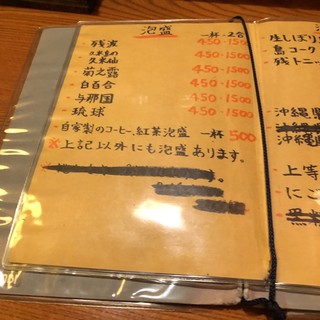 泡盛
一杯・2合
・残波 450・1500
・久米島の久米仙 450・1500
・菊之露 450・1500
・白百合 450・1500
・与那国 450・1500
・琉球 450・1500
自家製のコーヒー、紅茶泡盛 一杯 500
※上記以外にも泡盛あります。
生しぼり
島コーク
残トニー
沖縄県
沖縄
上等
にご
黒糖